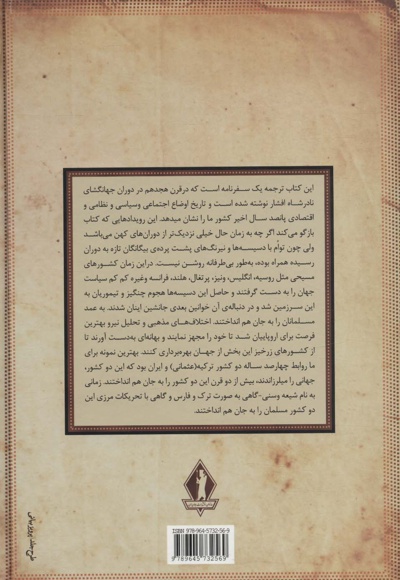 این کتاب ترجمه یک سفرنامه است که درقرن هجدهم در دوران جهانگشای
نادرشاه افشار نوشته شده است و تاریخ اوضاع اجتماعی وسیاسی و نظامی و
اقتصادی پانصد سال اخیر کشور ما را نشان میدهد. این رویدادهایی که کتاب
بازگو می‌کند اگر چه به زمان حال خیلی نزدیک‌تر از دوران‌های کهن می‌باشد
ولی چون توأم با دسیسه‌ها و نیرنگ‌های پشت پرده‌ی بیگانگان تازه به دوران
رسیده همراه بوده، به‌طور بی‌طرفانه روشن نیست. دراین زمان کشورهای
مسیحی مثل روسیه، انگلیس، ونیز، پرتغال، هلند، فرانسه وغیره کم کم سیاست
جهان را به دست گرفتند و حاصل این دسیسه‌ها هجوم چنگیز و تیموریان به
این سرزمین شد و در دنباله‌ی آن خوانین بعدی جانشین اینان شدند. به عمد
مسلمانان را به جان هم انداختند. اختلاف‌های مذهبی و تحلیل نیرو بهترین
فرصت برای اروپاییان شد تا خود را مجهز نمایند و بهانه‌ای به‌دست آورند تا
از کشورهای زرخیز این بخش از جهان بهره‌برداری کنند. بهترین نمونه برای
ما روابط چهارصد ساله دو کشور ترکیه(عثمانی) و ایران بود که این دو کشور،
جهانی را میلرزاندند، بیش از دو قرن این دو کشور را به جان هم انداختند. زمانی
به نام شیعه وسنی-گاهی به صورت ترک و فارس و گاهی با تحریکات مرزی این
دو کشور مسلمان را به جان هم انداختند.
ISBN 978-964-5732-56-9
9 789645 732569